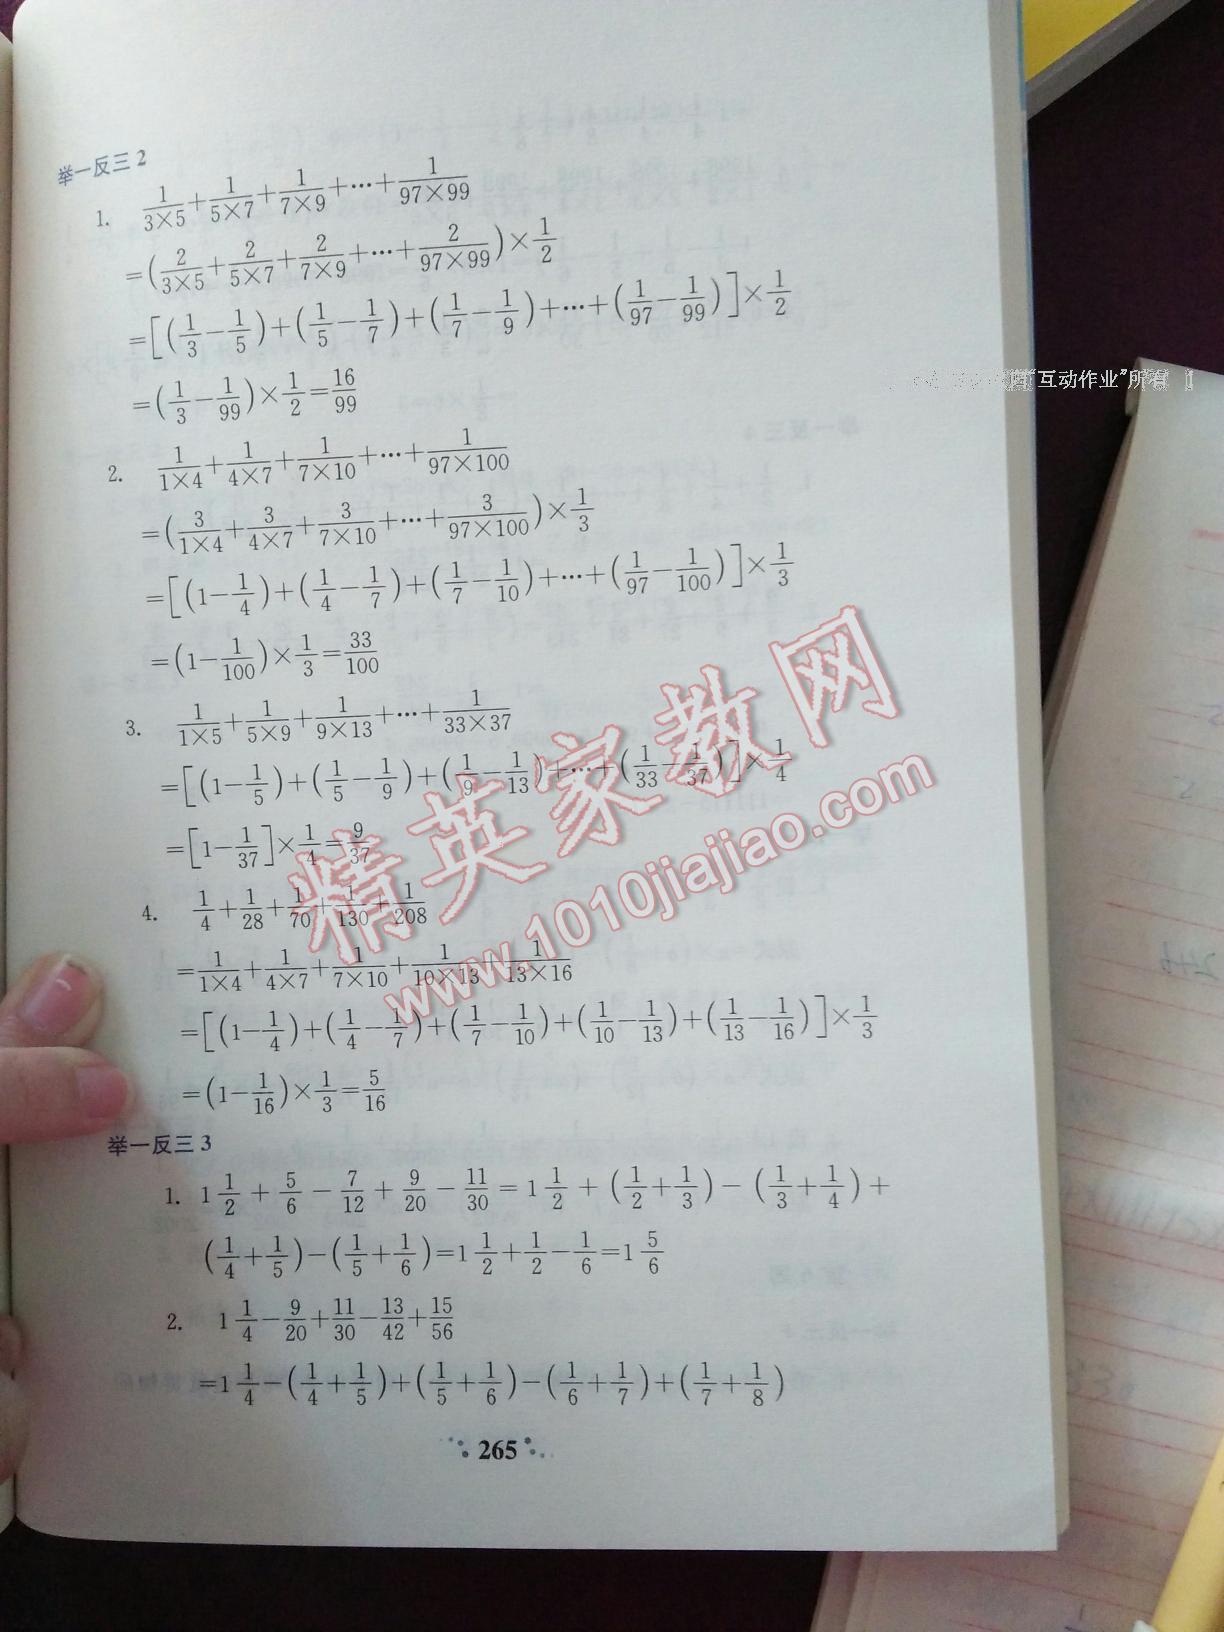 举一反三 2
1. 1/(3×5)+1/(5×7)+1/(7×9)+…+1/(97×99)
=(2/(3×5)+2/(5×7)+2/(7×9)+…+2/(97×99))×1/2
=[(1/3-1/5)+(1/5-1/7)+(1/7-1/9)+…+(1/97-1/99)]×1/2
=(1/3-1/99)×1/2=16/99
2. 1/(1×4)+1/(4×7)+1/(7×10)+…+1/(97×100)
=(3/(1×4)+3/(4×7)+3/(7×10)+…+3/(97×100))×1/3
=[(1-1/4)+(1/4-1/7)+(1/7-1/10)+…+(1/97-1/100)]×1/3
=(1-1/100)×1/3=33/100
3. 1/(1×5)+1/(5×9)+1/(9×13)+…+1/(33×37)
=[(1-1/5)+(1/5-1/9)+(1/9-1/13)+…+(1/33-1/37)]×1/4
=[1-1/37]×1/4=9/37
4. 1/4+1/28+1/70+1/130+1/208
=1/(1×4)+1/(4×7)+1/(7×10)+1/(10×13)+1/(13×16)
=[(1-1/4)+(1/4-1/7)+(1/7-1/10)+(1/10-1/13)+(1/13-1/16)]×1/3
=(1-1/16)×1/3=5/16
举一反三 3
1. 1 1/2+5/6-7/12+9/20-11/30=1 1/2+(1/2+1/3)-(1/3+1/4)+
(1/4+1/5)-(1/5+1/6)=1 1/2+1/2-1/6=1 5/6
2. 1 1/4-9/20+11/30-13/42+15/56
=1 1/4-(1/4+1/5)+(1/5+1/6)-(1/6+1/7)+(1/7+1/8)
265
精英家教网
www.1010jiajiao.com
"互动作业"所有